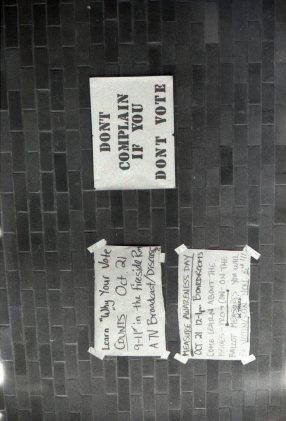 DONT
COMPLAIN
IF YOU
DONT VOTE
Learn "Why Your Vote
COUNTS" Oct 21
9-11 in the Fireside Rm
A TV Broadcast/Discuss
MEASURE AWARENESS DAY
OCT 21 12-1pm BOARDROOMS
COME LEARN ABOUT THE
ON THE
BALLOT MEASURES YOU WILL